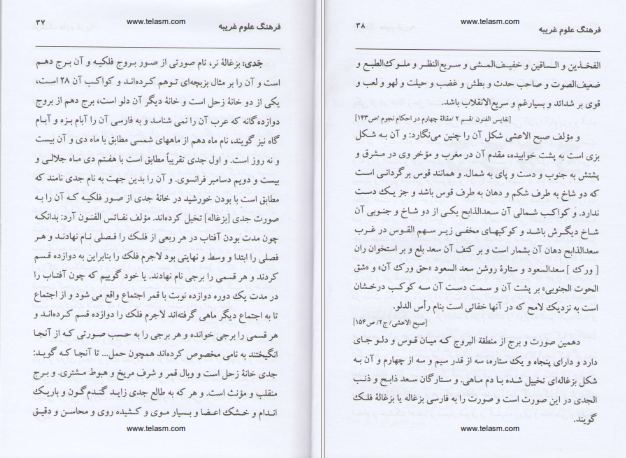 www.telasm.com
۳۷
فرهنگ علوم غریبه
جَدی: بزغالهٔ نر، نام صورتی از صور بروج فلکیه و آن برج دهم
است و آن را بر مثال بزبچه‌ای توهم کرده‌اند و کواکب آن ۲۸ است،
یکی از دو خانهٔ زحل است و خانهٔ دیگر آن دلو است، برج دهم از بروج
دوازده‌گانه که عرب آن را نمی شناسد و به فارسی آن را آبام بزه و آبام
گاه نیز گویند، نام ماه دهم از ماههای شمسی مطابق با ماه دی و آن بیست
و نه روز است. و اول جدی تقریباً مطابق است با هفتم دی ماه جلالی و
بیست و دویم دسامبر فرانسوی. و آن را بدین جهت به نام جدی نامند که
مطابق است با بودن خورشید در خانهٔ جدی از صور فلکیه که آن را به
صورت جدی [بزغاله] تخیل کرده‌اند. مؤلف نفائس الفنون آرد: بدانکه
چون مدت بودن آفتاب در هر ربعی از فلک را فصلی نام نهادند و هر
فصلی را ابتدا و وسط و نهایتی بود لاجرم فلک را بنابراین به دوازده قسم
کردند و هر قسمی را برجی نام نهادند. یا خود گوییم که چون آفتاب را
در مدت یک دوره دوازده نوبت با قمر اجتماع واقع می شود و از اجتماع
تا به اجتماع دیگر ماهی گرفته‌اند لاجرم فلک را دوازده قسم کرده‌اند و
هر قسمی را برجی خوانده و هر برجی را به حسب صورتی که از آنجا
انگیختند به نامی مخصوص کرده‌اند همچون حمل... تا آنجا که گوید:
جدی خانهٔ زحل است و وبال قمر و شرف مریخ و هبوط مشتری. و برج
منقلب و مؤنث است. و هر که به طالع جدی زاید گندم گون و باریک
اندام و خشک اعضا و بسیار موی و کشیده روی و محاسن و دقیق
www.telasm.com
www.telasm.com
۳۸
فرهنگ علوم غریبه
الفخذین و الساقین و خفیف‌المشی و سریع‌النظر و ملوک‌الطبع و
ضعیف‌الصوت و صاحب حدت و بطش و غضب و حیلت و لهو و لعب و
قوی بر شدائد و بسیارغم و سریع‌الانقلاب باشد.
[نفایس الفنون قسم ۲ مقالهٔ چهارم در احکام نجوم /ص۱۴۳]
و مؤلف صبح الاعشی شکل آن را چنین می‌نگارد: و آن به شکل
بزی است به پشت خوابیده، مقدم آن در مغرب و مؤخر وی در مشرق و
پشتش به جنوب و دست و پای به شمال. و همانند قوس برگردانی است
که دو شاخ به طرف شکم و دهان به طرف قوس باشد و جز یک دست
ندارد. و کواکب شمالی آن سعدالذابح یکی از دو شاخ و جنوبی آن
شاخ دیگرش باشد و کوکبهای مخفی زیر سهم القوس در غرب
سعدالذابح دهان آن بشمار است و بر کتف آن سعد بلع و بر استخوان ران
[ ورک ] سعدالسعود و ستارهٔ روشن سعد السعود «حق ورک آن» و «شق
الحوت الجنوبی» بر پشت آن و سمت دست آن سه کوکب درخشان
است به نزدیک لامح که در آنها خفائی است بنام رأس الدلو.
[صبح الاعشی /ج۲/ ص۱۵۴]
دهمین صورت و برج از منطقة البروج که میان قوس و دلو جای
دارد و دارای پنجاه و یک ستاره، سه از قدر سیم و سه از چهارم و آن به
شکل بزغاله‌ای تخییل شده با دم ماهی. و ستارگان سعد ذابح و ذنب
الجدی در این صورت است و صورت را به فارسی بزغاله یا بزغالهٔ فلک
گویند.
www.telasm.com